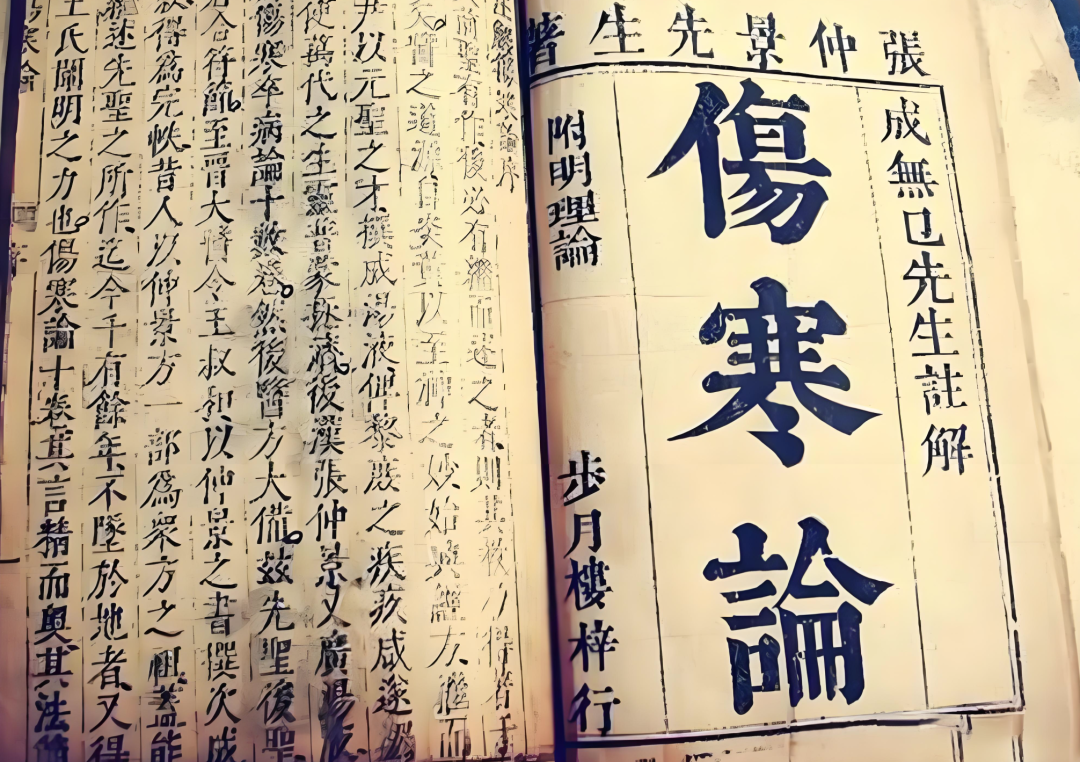 張仲景先生著
成無已先生註解
傷寒論
附明理論
步月樓梓行
傷寒論序
前聖有作後必有繼而述之者則其教乃得著于
矣醫之道源自炎黃以至神之妙始興經方繼而
尹以元聖之才撰成湯液俾黎庶之疾疢咸遂蠲
使萬代之生靈普蒙拯濟後漢張仲景又廣湯液
傷寒卒病論十數卷然後醫方大備茲先聖後聖
若合符節至晉大醫令王叔和以仲景之書撰次成
敘得為完帙昔人以仲景方一部為衆方之祖蓋能
繼述先聖之所作迄今千有餘年不墜於地者又得
王氏闡明之力也傷寒論十卷其言精而奧其法簡